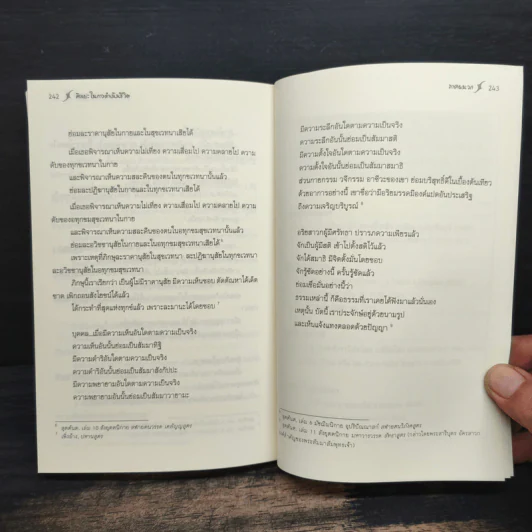 242 ศิลปะในการดำเนินชีวิต
ย่อมละราคานุสัยในกายและในสุขเวทนาเสียได้
เมื่อเธอพิจารณาเห็นความไม่เที่ยง ความเสื่อมไป ความคลายไป ความ
ดับของทุกขเวทนาในกาย
และพิจารณาเห็นความสละคืนในทุกขเวทนานั้นแล้ว
ย่อมละปฏิฆานุสัยในกายและในทุกขเวทนาเสียได้
เมื่อเธอพิจารณาเห็นความไม่เที่ยง ความเสื่อมไป ความคลายไป ความ
ดับของอทุกขมสุขเวทนาในกาย
และพิจารณาเห็นความสละความคืนตนในอทุกขมสุขเวทนานั้นแล้ว
ย่อมละอวิชชานุสัยในกายและในอทุกขมสุขเวทนาเสียได้ 6
เพราะเหตุที่ภิกษุละราคานุสัยในสุขเวทนา ละปฏิฆานุสัยในทุกขเวทนา
ละอวิชชานุสัยในอทุกขมสุขเวทนา
ภิกษุนี้เราเรียกว่า เป็นผู้ไม่มีราคานุสัย มีความเห็นชอบ ตัดตัณหาได้เด็ด
ขาด เพิกถอนสังโยชน์ได้แล้ว
ได้กระทำที่สุดแห่งทุกข์แล้ว เพราะละมานะได้โดยชอบ 7
บุคคล...เมื่อมีความเห็นอันใดตามความเป็นจริง
ความเห็นอันนั้นย่อมเป็นสัมมาทิฐิ
มีความดำริอันใดตามความเป็นจริง
ความดำริอันนั้นย่อมเป็นสัมมาสังกัปปะ
มีความพยายามอันใดตามความเป็นจริง
ความพยายามอันนั้นย่อมเป็นสัมมาวายามะ
6 ชุดคันถ. เล่ม 10 สังยุตตนิกาย
7 เพิ่งอ้าง,
243
มีความระลึกอันใดตามความเป็นจริง
ความระลึกอันนั้นย่อมเป็นสัมมาสติ
มีความตั้งใจอันใดตามความเป็นจริง
ความตั้งใจอันนั้นย่อมเป็นสัมมาสมาธิ
ส่วนกายกรรม วจีกรรม อาชีวะของเขา ย่อมบริสุทธิ์ดีในเบื้องต้นเทียว
ด้วยอาการอย่างนี้ เขาชื่อว่ามีอริยมรรคมีองค์แปดอันประเสริฐ
ถึงความเจริญบริบูรณ์ 8
อริยสาวกผู้มีศรัทธา ปรารภความเพียรแล้ว
จักเป็นผู้มีสติ เข้าไปตั้งสติไว้แล้ว
จักได้สมาธิ มีจิตตั้งมั่นโดยชอบ
จักรู้ชัดอย่างนี้ ครั้นรู้ชัดแล้ว
ย่อมเชื่อมั่นอย่างนี้ว่า
ธรรมเหล่านี้ ก็คือธรรมที่เราเคยได้ฟังมาแล้วนั่นเอง
เหตุนั้น บัดนี้ เราประจักษ์อยู่ด้วยนามรูป
และเห็นแจ้งแทงตลอดด้วยปัญญา 9
8 ชุดคันถ. เล่ม 8 มัชฌิมนิกาย อุปริปัณณาสก์
9 ชุดคันถ. เล่ม 11 สังยุตตนิกาย มหาวารวรรค